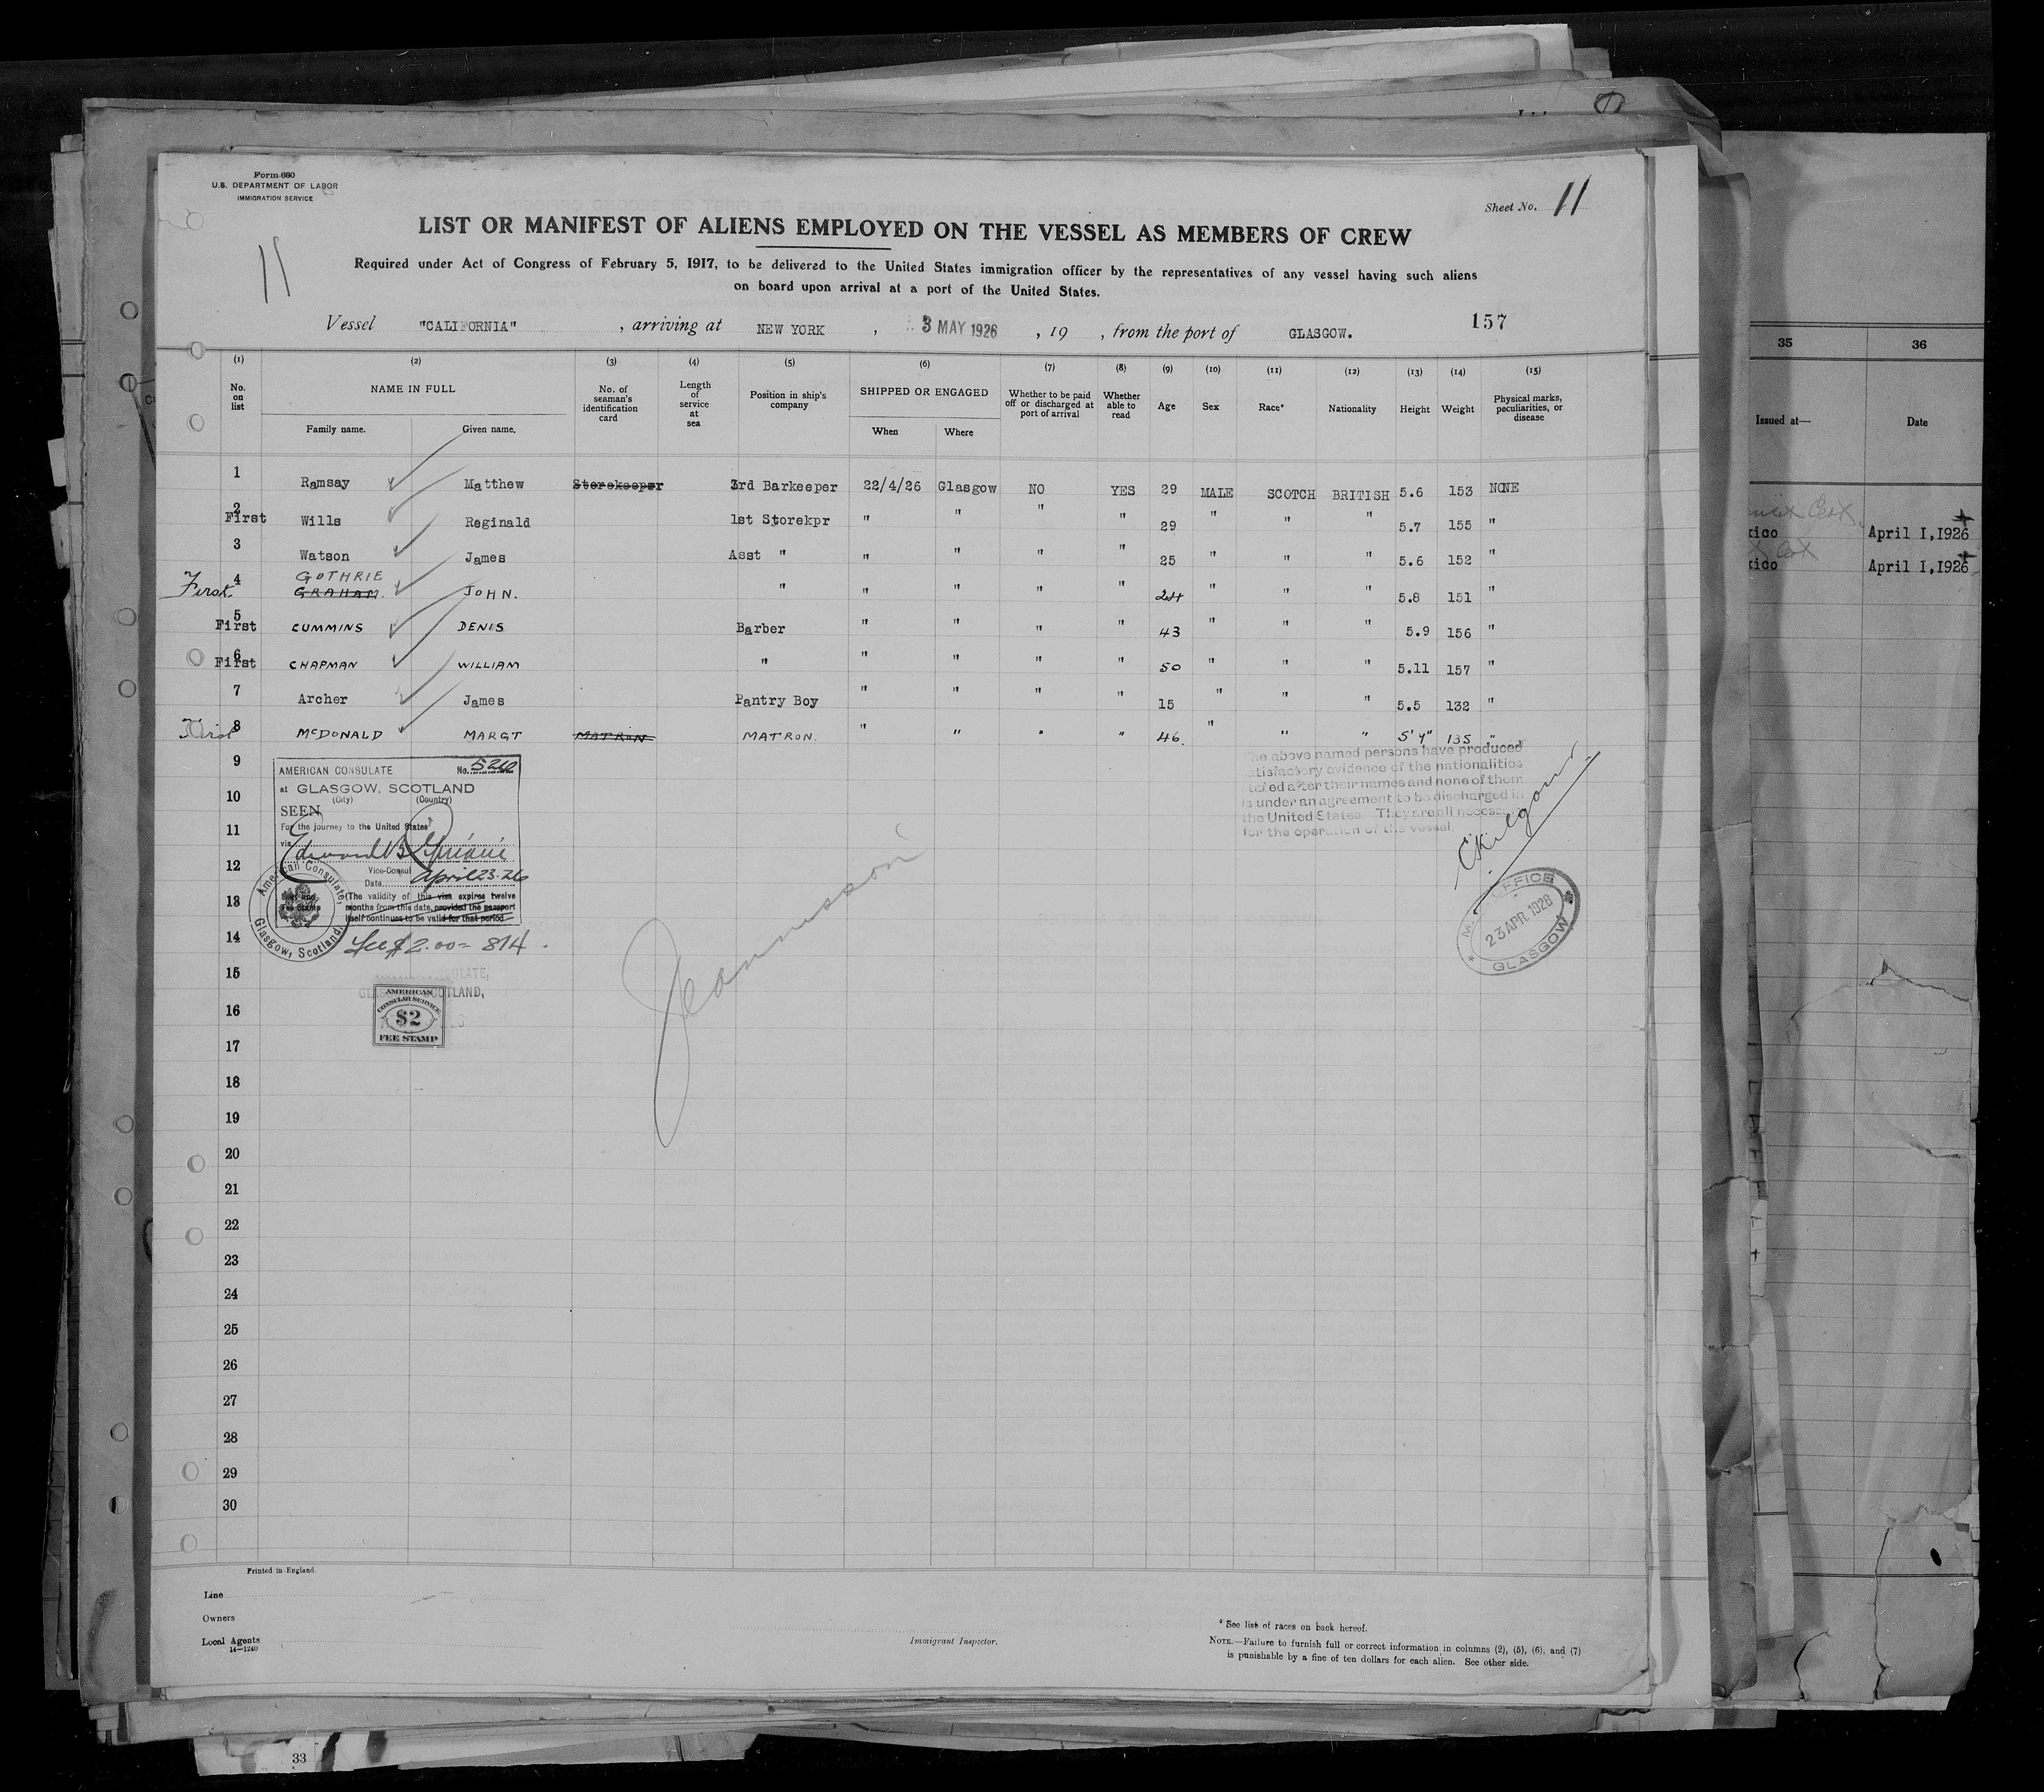 Form 680
U.S. DEPARTMENT OF LABOR
IMMIGRATION SERVICE
Sheet No. 11
LIST OR MANIFEST OF ALIENS EMPLOYED ON THE VESSEL AS MEMBERS OF CREW
11
Required under Act of Congress of February 5, 1917, to be delivered to the United States immigration officer by the representatives of any vessel having such aliens
on board upon arrival at a port of the United States.
Vessel "CALIFORNIA" , arriving at NEW YORK , 3 MAY 1926 , 19 , from the port of GLASGOW. 157
(1) (2) (3) (4) (5) (6) (7) (8) (9) (10) (11) (12) (13) (14) (15)
No. on list NAME IN FULL Family name. Given name. No. of seaman's identification card Length of service at sea Position in ship's company SHIPPED OR ENGAGED When Where Whether to be paid off or discharged at port of arrival Whether able to read Age Sex Race* Nationality Height Weight Physical marks, peculiarities, or disease
1 Ramsay Matthew Storekeeper 3rd Barkeeper 22/4/26 Glasgow NO YES 29 MALE SCOTCH BRITISH 5.6 153 NONE
2 First Wills Reginald 1st Storekpr " " " " 29 " " " 5.7 155 "
3 Watson James Asst " " " " " 25 " " " 5.6 152 "
GUTHRIE
First 4 GRAHAM. JOHN. " " " " " 24 " " " 5.8 151 "
5 First CUMMINS DENIS Barber " " " " 43 " " " 5.9 156 "
6 First CHAPMAN WILLIAM " " " " " 50 " " " 5.11 157 "
7 Archer James Pantry Boy " " " " 15 " " " 5.5 132 "
First 8 McDONALD MARGT MATRON MATRON. " " " " 46. " " " 5'4" 135 "
9
10
11
12
13
14
15
16
17
18
19
20
21
22
23
24
25
26
27
28
29
30
AMERICAN CONSULATE No. 5240
at GLASGOW, SCOTLAND
(City) (Country)
SEEN
For the journey to the United States
via
Edward B.
Vice-Consul
Date April 23-26
(The validity of this visa expires twelve
months from this date, provided the passport
itself continues to be valid for that period
American Consulate, Glasgow, Scotland.
Fee $2.00 = 8/4.
SCOTLAND,
AMERICAN
CONSULAR SERVICE
$2
FEE STAMP
The above named persons have produced
satisfactory evidence of the nationalities
stated after their names and none of them
is under an agreement to be discharged in
the United States. They are all necessary
for the operation of the vessel.
C Kilgour
OFFICE
23 APR. 1926
GLASGOW
Printed in England.
Line
Owners
Local Agents
14—1240
Immigrant Inspector.
* See list of races on back hereof.
NOTE.—Failure to furnish full or correct information in columns (2), (5), (6), and (7)
is punishable by a fine of ten dollars for each alien. See other side.
35 36
Issued at— Date
xico April 1,1926
xico April 1,1926
33